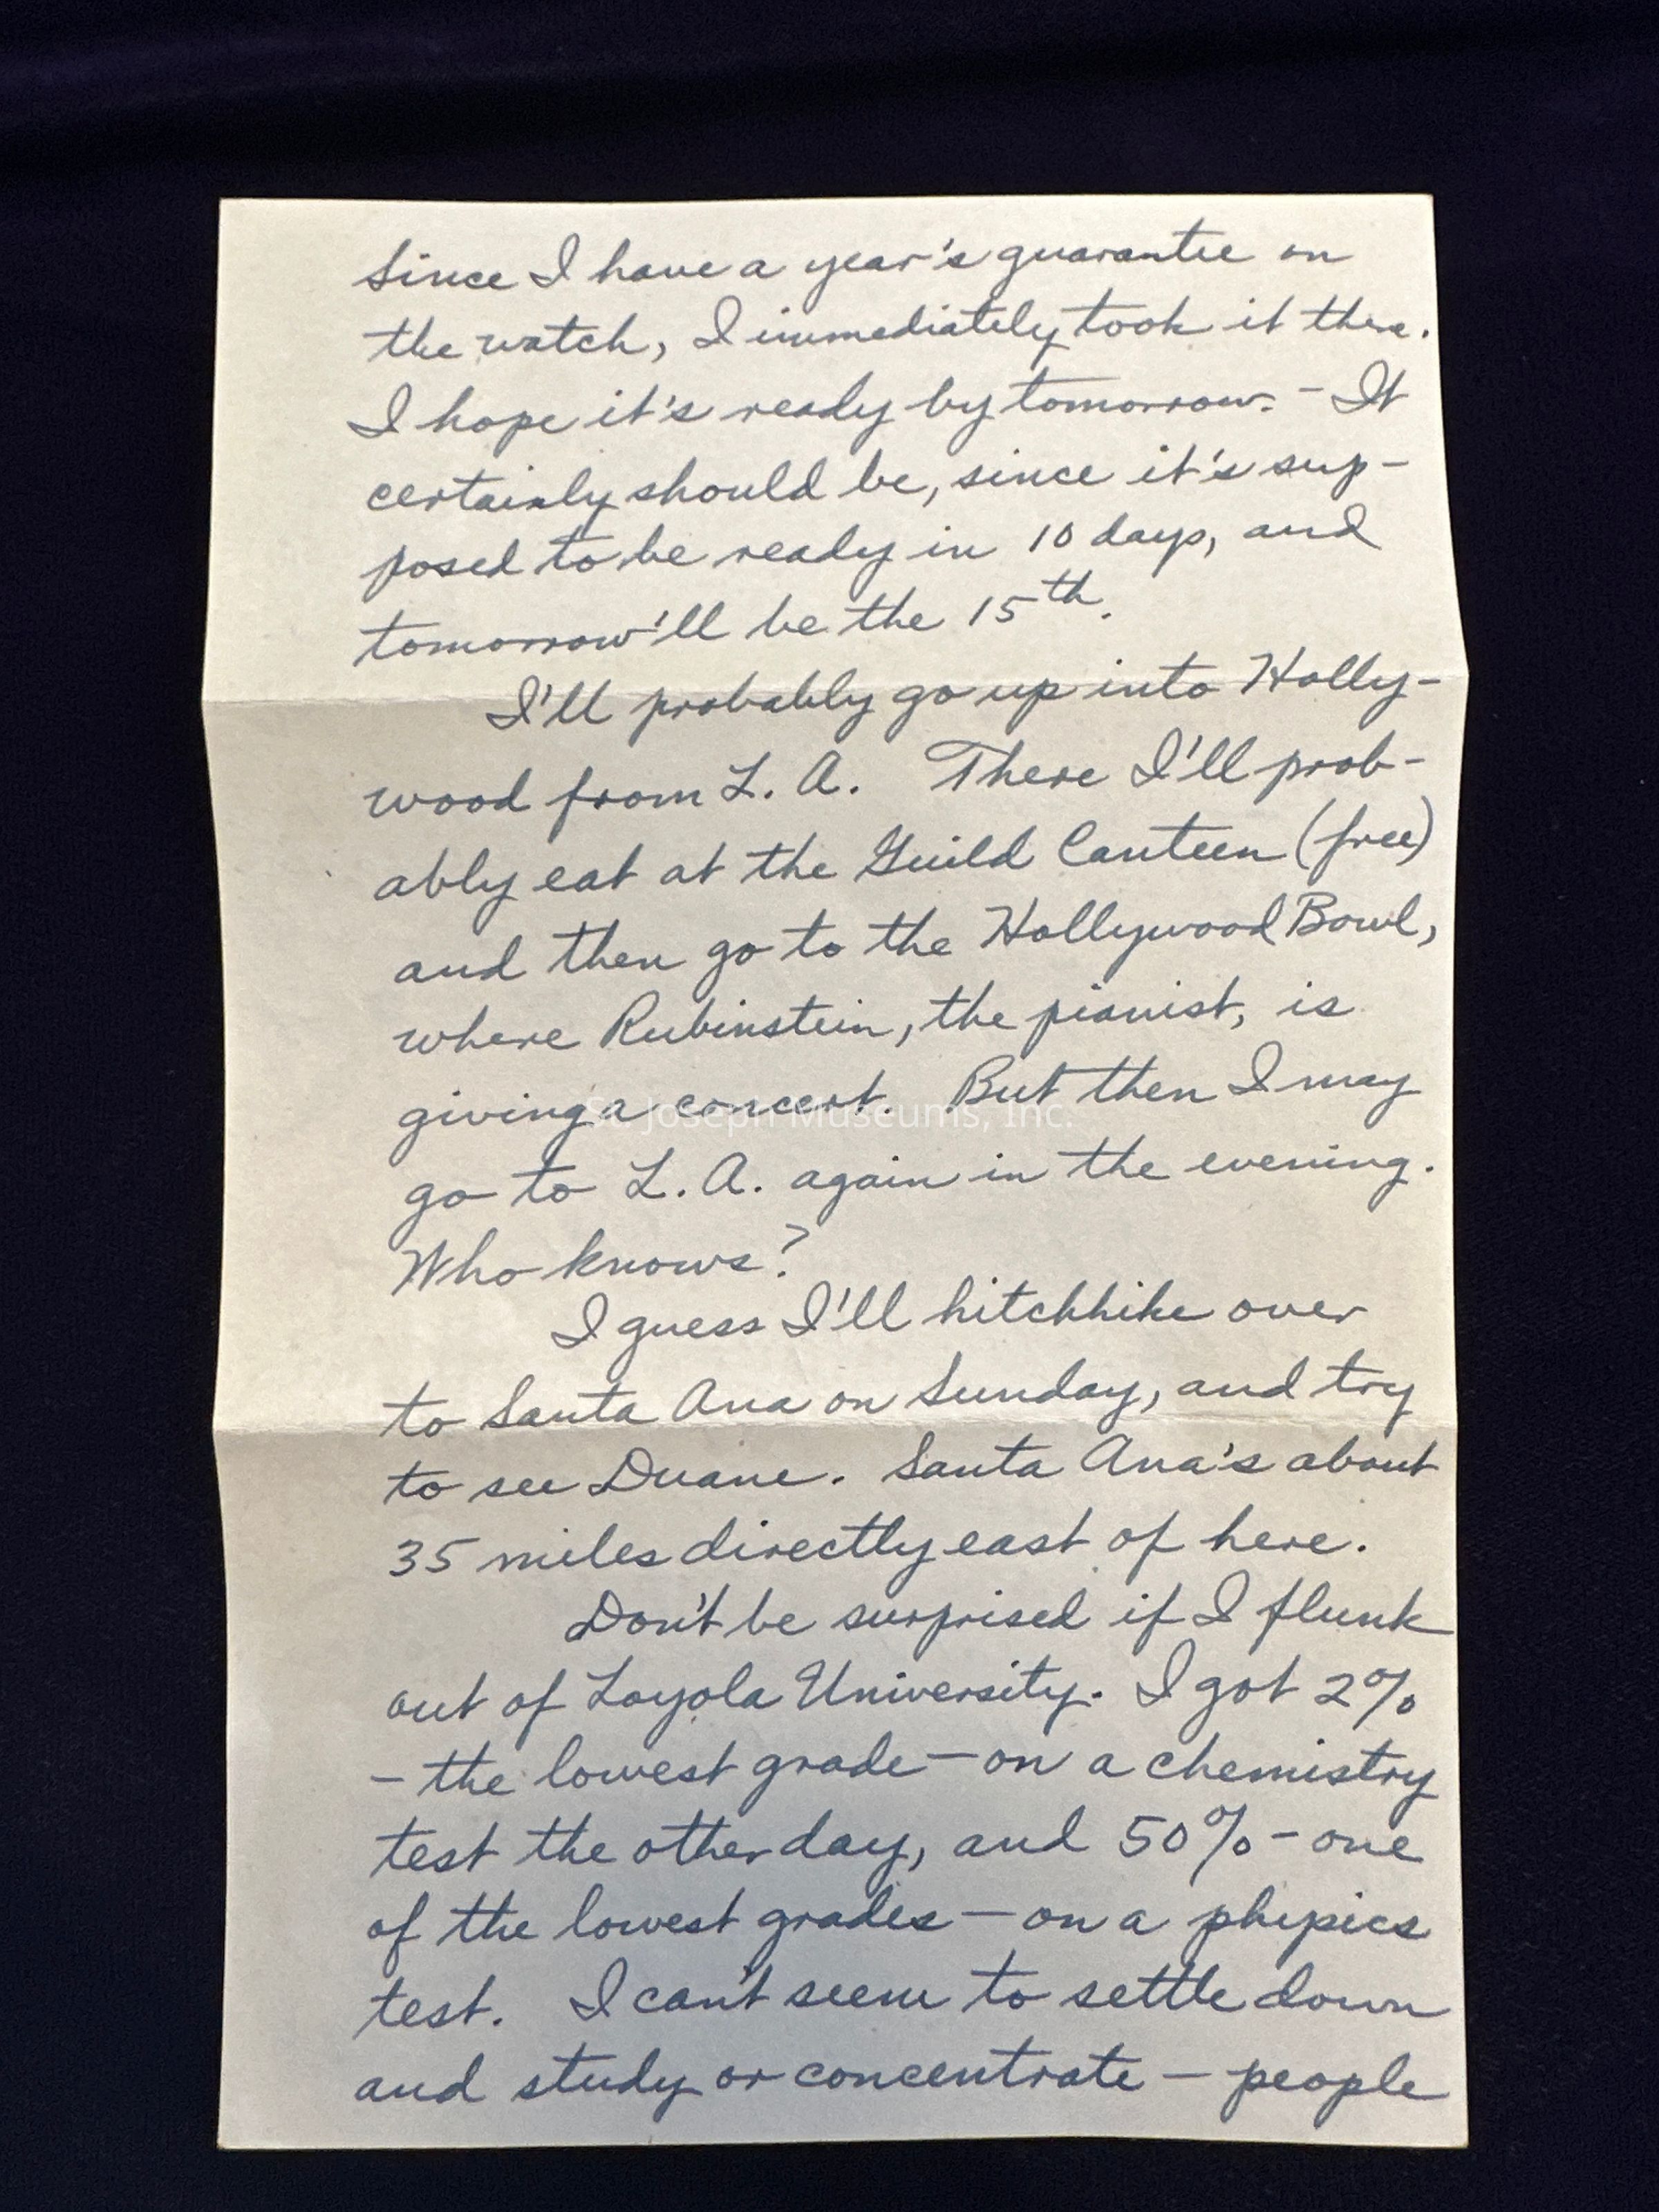 since I have a year's guarantee on
the watch, I immediately took it there.
I hope it's ready by tomorrow. - It
certainly should be, since it's sup-
posed to be ready in 10 days, and
tomorrow'll be the 15th.
I'll probably go up into Holly-
wood from L. A. There I'll prob-
ably eat at the Guild Canteen (free)
and then go to the Hollywood Bowl,
where Rubinstein, the pianist, is
giving a concert. But then I may
St. Joseph Museums, Inc.
go to L. A. again in the evening.
Who knows?
I guess I'll hitchhike over
to Santa Ana on Sunday, and try
to see Duane. Santa Ana's about
35 miles directly east of here.
Don't be surprised if I flunk
out of Loyola University. I got 2%
- the lowest grade - on a chemistry
test the other day, and 50% - one
of the lowest grades - on a physics
test. I can't seem to settle down
and study or concentrate - people